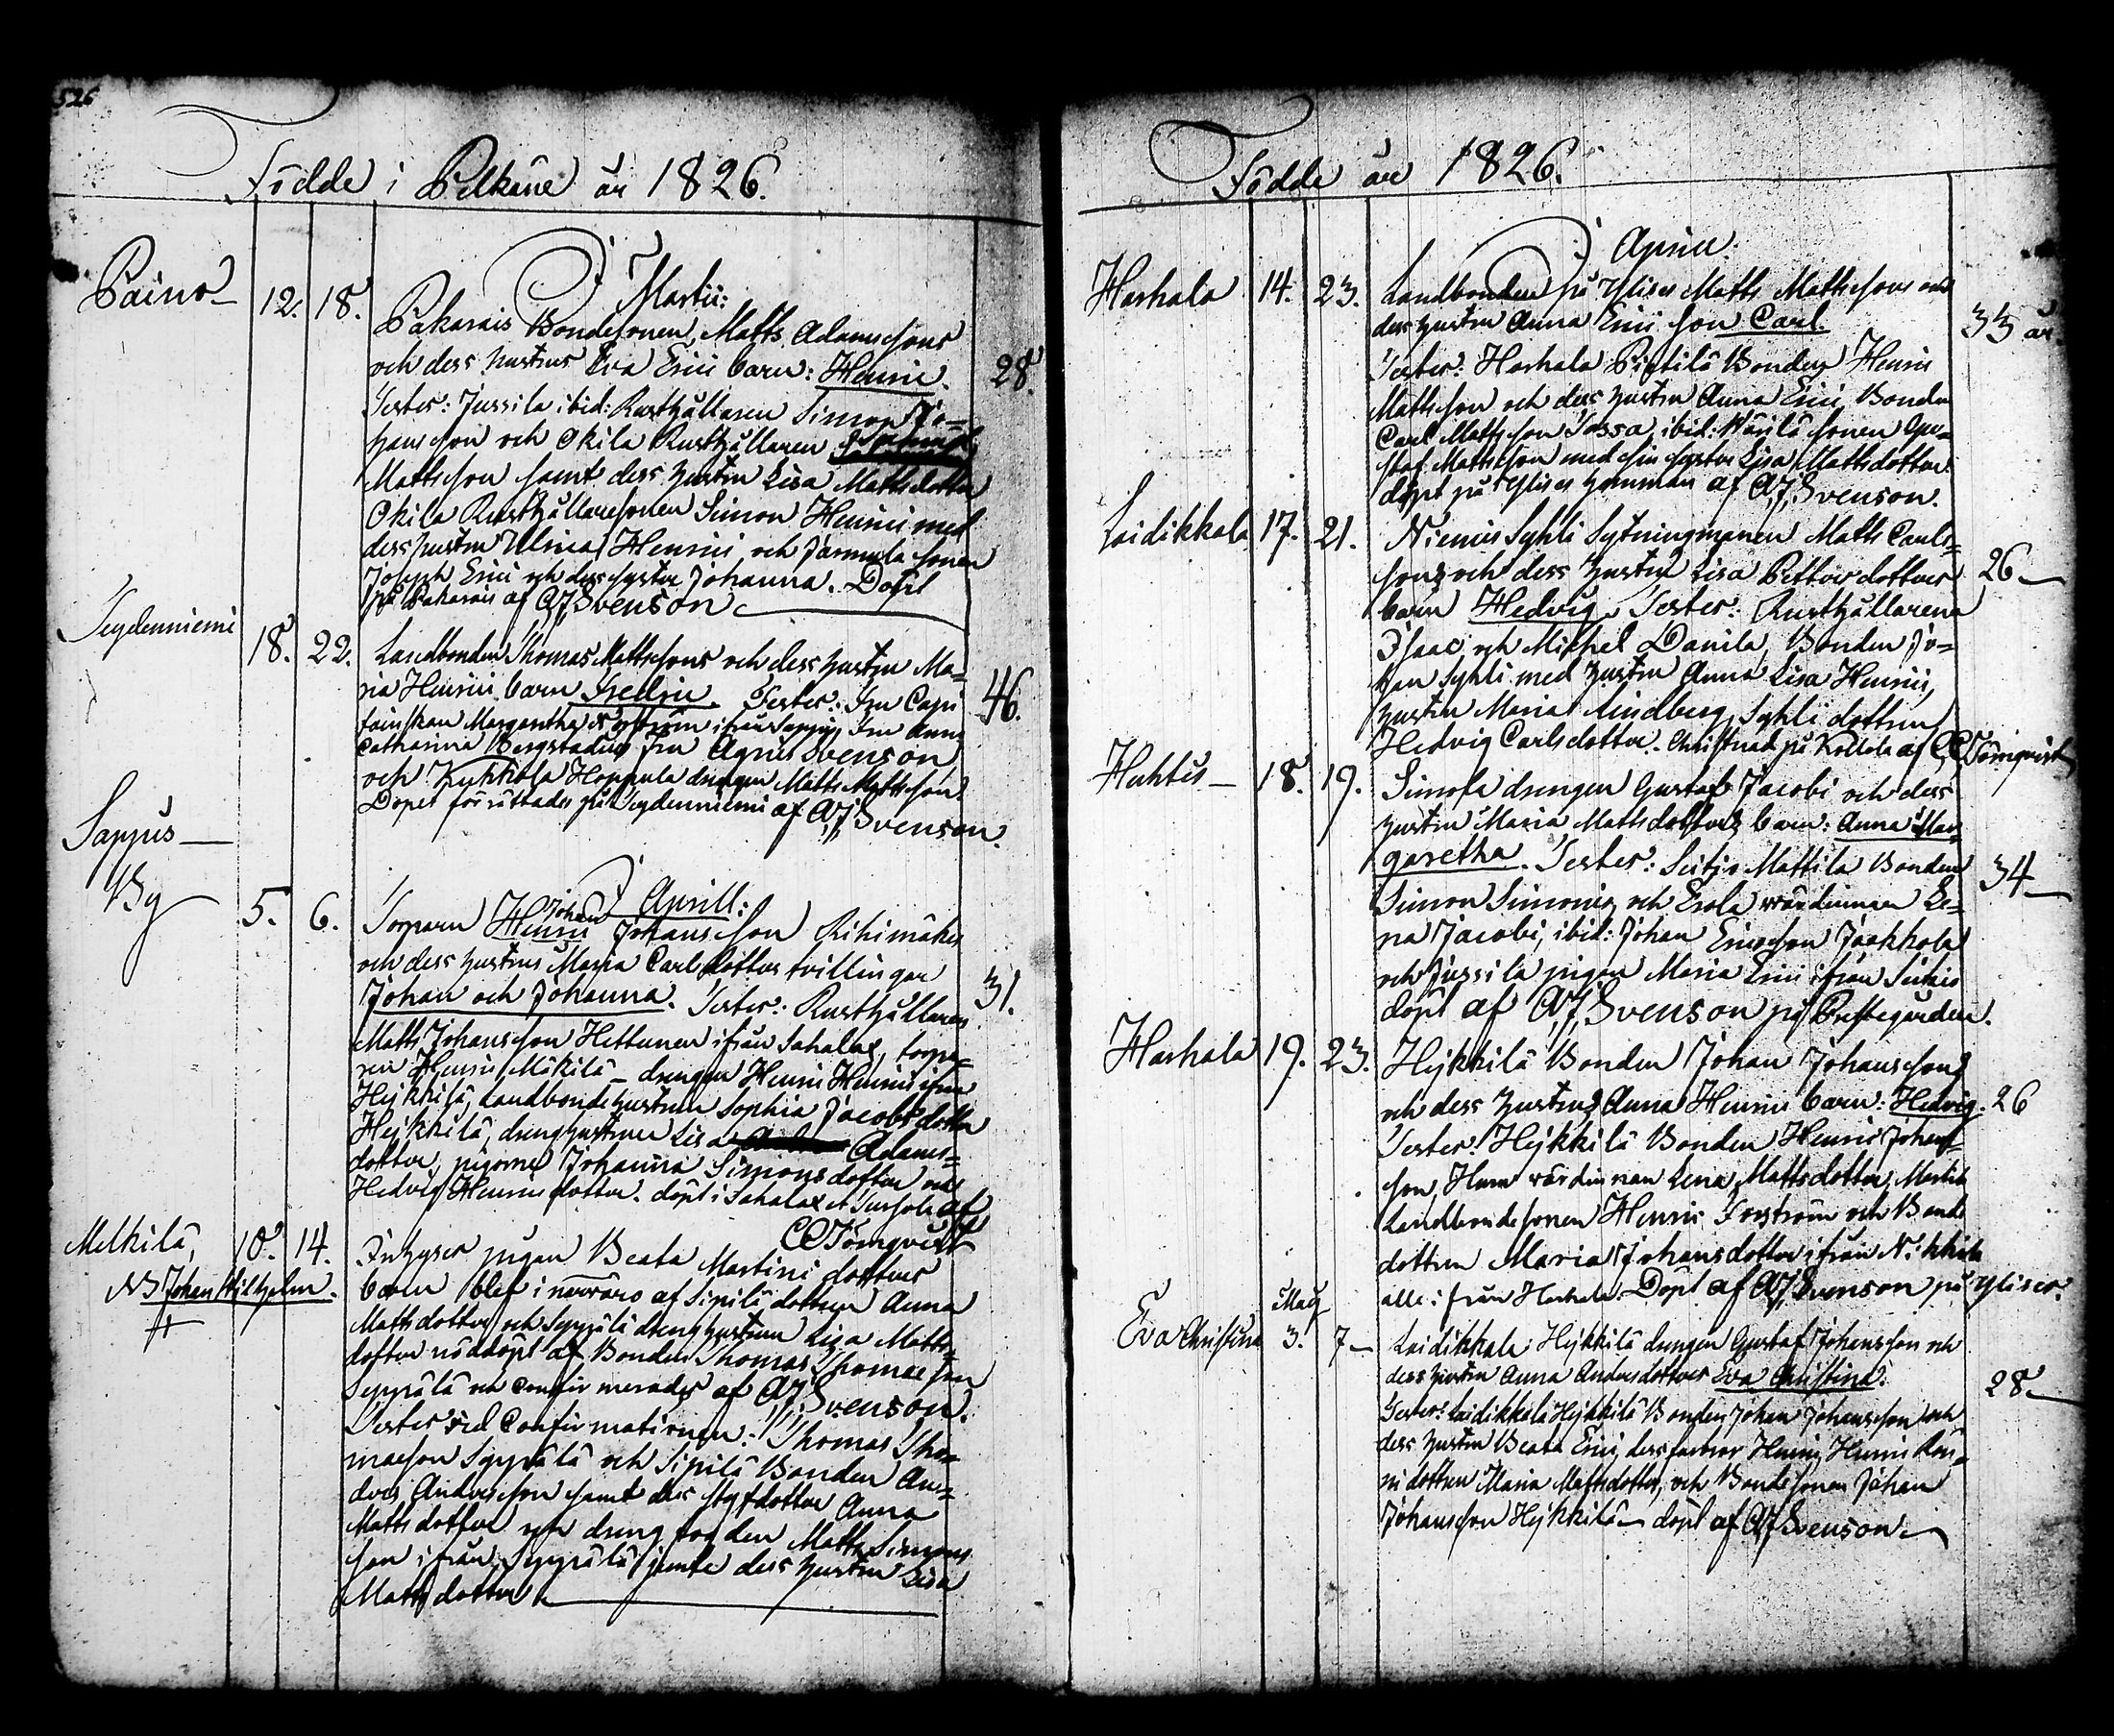 526
Födde i Pelkäne år 1826.
i Martii:
Päino 12. 18. Pakarais Bondesonen Matts Adamssons
och dess hustrus Eva Erici barn: Henric. 28.
Tester: Jussila ibid: Rusthållaren Simon Jo=
hansson och Okila Rusthållaren
Mattsson samt dess hustru Lisa Mattsdotter
Okila Rusthållaresonen Simon Henrici med
dess hustru Ulrica Henrici och Jarmula sonen
Joseph Erici och dess syster Johanna. Döpt
på Pakarais af A.J. Svenson
Seydenniemi 18. 22. Landbonden Thomas Mattssons och dess hustru Ma=
ria Henrici barn Fredric. Tester: Fru Capi 46.
tainskan Margaretha ifrån Sappus, Fru Anna
Catharina Bergstadius Fru Agnes Svenson
och Kukkola Hoppula drengen Matts Mattsson.
Dopet förrättades på Seydenniemi af A.J. Svenson.
Sappus
By
i Aprill:
5. 6. Torparen Henric Johan Johansson Rihimäkes
och dess hustrus Maria Carlsdotters tvillingar 31.
Johan och Johanna. Tester: Rusthållaren
Matts Johansson Hettunen ifrån Sahalax, torpa=
ren Henric Mäkilä drengen Henric Henrici ifrån
Hejkkilä, Landbondehustrun Sophia Jacobsdotter
Hejkkilä, drenghustrun Lisa Adams=
dotter, pigorna Johanna Simonsdotter och
Hedvig Henricsdotter. döpt i Sahalax af
C C Törnqvist
Melkilä, 10. 14. Inhyses pigan Beata Martini dotters
NB Johan Wilhelm. barn blef i närvaro af Sipilä dottren Anna
Mattsdotter och Seppälä drenghustrun Lisa Matts=
dotter nöddöpt af Bonden Thomas Thomasson
Seppälä och confirmerades af A.J. Svenson.
Tester vid Confirmationen: Thomas Tho=
masson Seppälä och Sipilä Bonden An=
ders Andersson samt dess styfdotter Anna
Mattsdotter och dreng Matts Simons
son ifrån Seppälä jemte dess hustru Lisa
Mattsdotter
Födde år 1826.
i Aprill.
Harhala 14. 23. Landbonden på Ylises Matts Mattssons och
dess hustru Anna Erici son Carl. 33 år.
Tester: Harhala Pietilä Bonden Henric
Mattsson och dess hustru Anna Erici Bonden
Carl Mattsson Jossa, ibid: sonen Gu=
staf Mattsson med sin syster Lisa Mattsdotter.
döpt på Ylises hemman af A.J. Svenson.
Laidikkala 17. 21. Niemis Syhli Sytningmanen Matts Carls=
sons och dess hustru Lisa Petters dotters 26
barn Hedvig. Tester: Rusthållarena
Isaac och Michel Danila, Bonden Jo=
han Syhli med hustru Anna Lisa Henrici,
hustru Maria Lindberg, Syhli dottren
Hedvig Carlsdotter. Christnad på Kollola af C C Törnqvist
Huhtis 18. 19. Simola drengen Gustaf Jacobi och dess
hustru Maria Mattsdotters barn: Anna Mar=
garetha. Tester: Seitjo Mattila Bonden 34
Simon Simonis, och Erola värdinnan Le=
na Jacobi, ibid: Johan Ericsson Jaakkola
och Jussila pigan Maria Erici ifrån
döpt af A.J. Svenson på Prestegården.
Harhala 19. 23. Hejkkilä Bonden Johan Johanssons
och dess hustrus Anna Henrici barn: Hedvig. 26
Tester: Hejkkilä Bonden Henric Johans=
son, värdinnan Lena Mattsdotter,
Landbondesonen Henric Forström och Bonde
dottren Maria Johansdotter ifrån Nikkilä
alle ifrån Harhala. Döpt af A.J. Svenson på Ylises.
Maij
Eva Christina 3. 7. Laidikkala Hejkkilä drengen Gustaf Johansson och
dess hustru Anna Andersdotters Eva Christina. 28
Tester: Laidikkala Hejkkilä Bonden Johan Johansson och
dess hustru Beata Erici, dess farbror Henric Henrici
dottren Maria Mattsdotter, och Bondesonen Johan
Johansson Hejkkilä döpt af A.J. Svenson